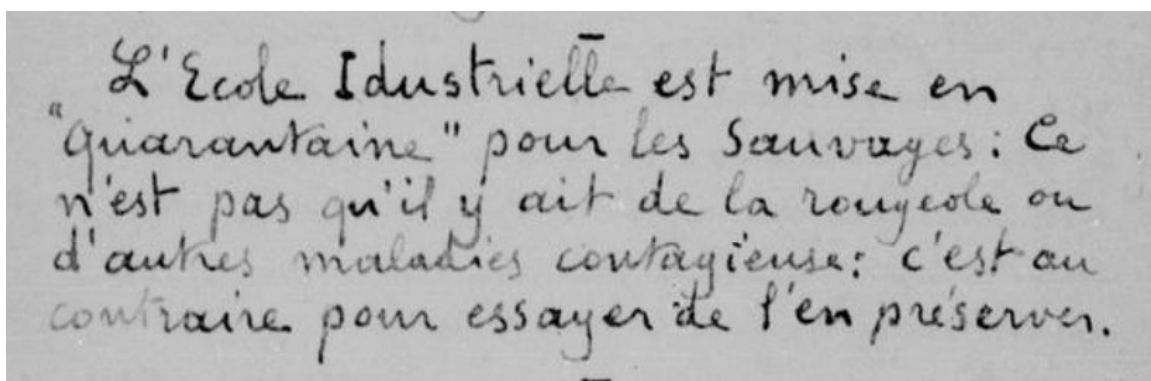 L'Ecole Idustrielle est mise en
"Quarantaine" pour les Sauvages: Ce
n'est pas qu'il y ait de la rougeole ou
d'autres maladies contagieuse: c'est au
contraire pour essayer de l'en préserver.